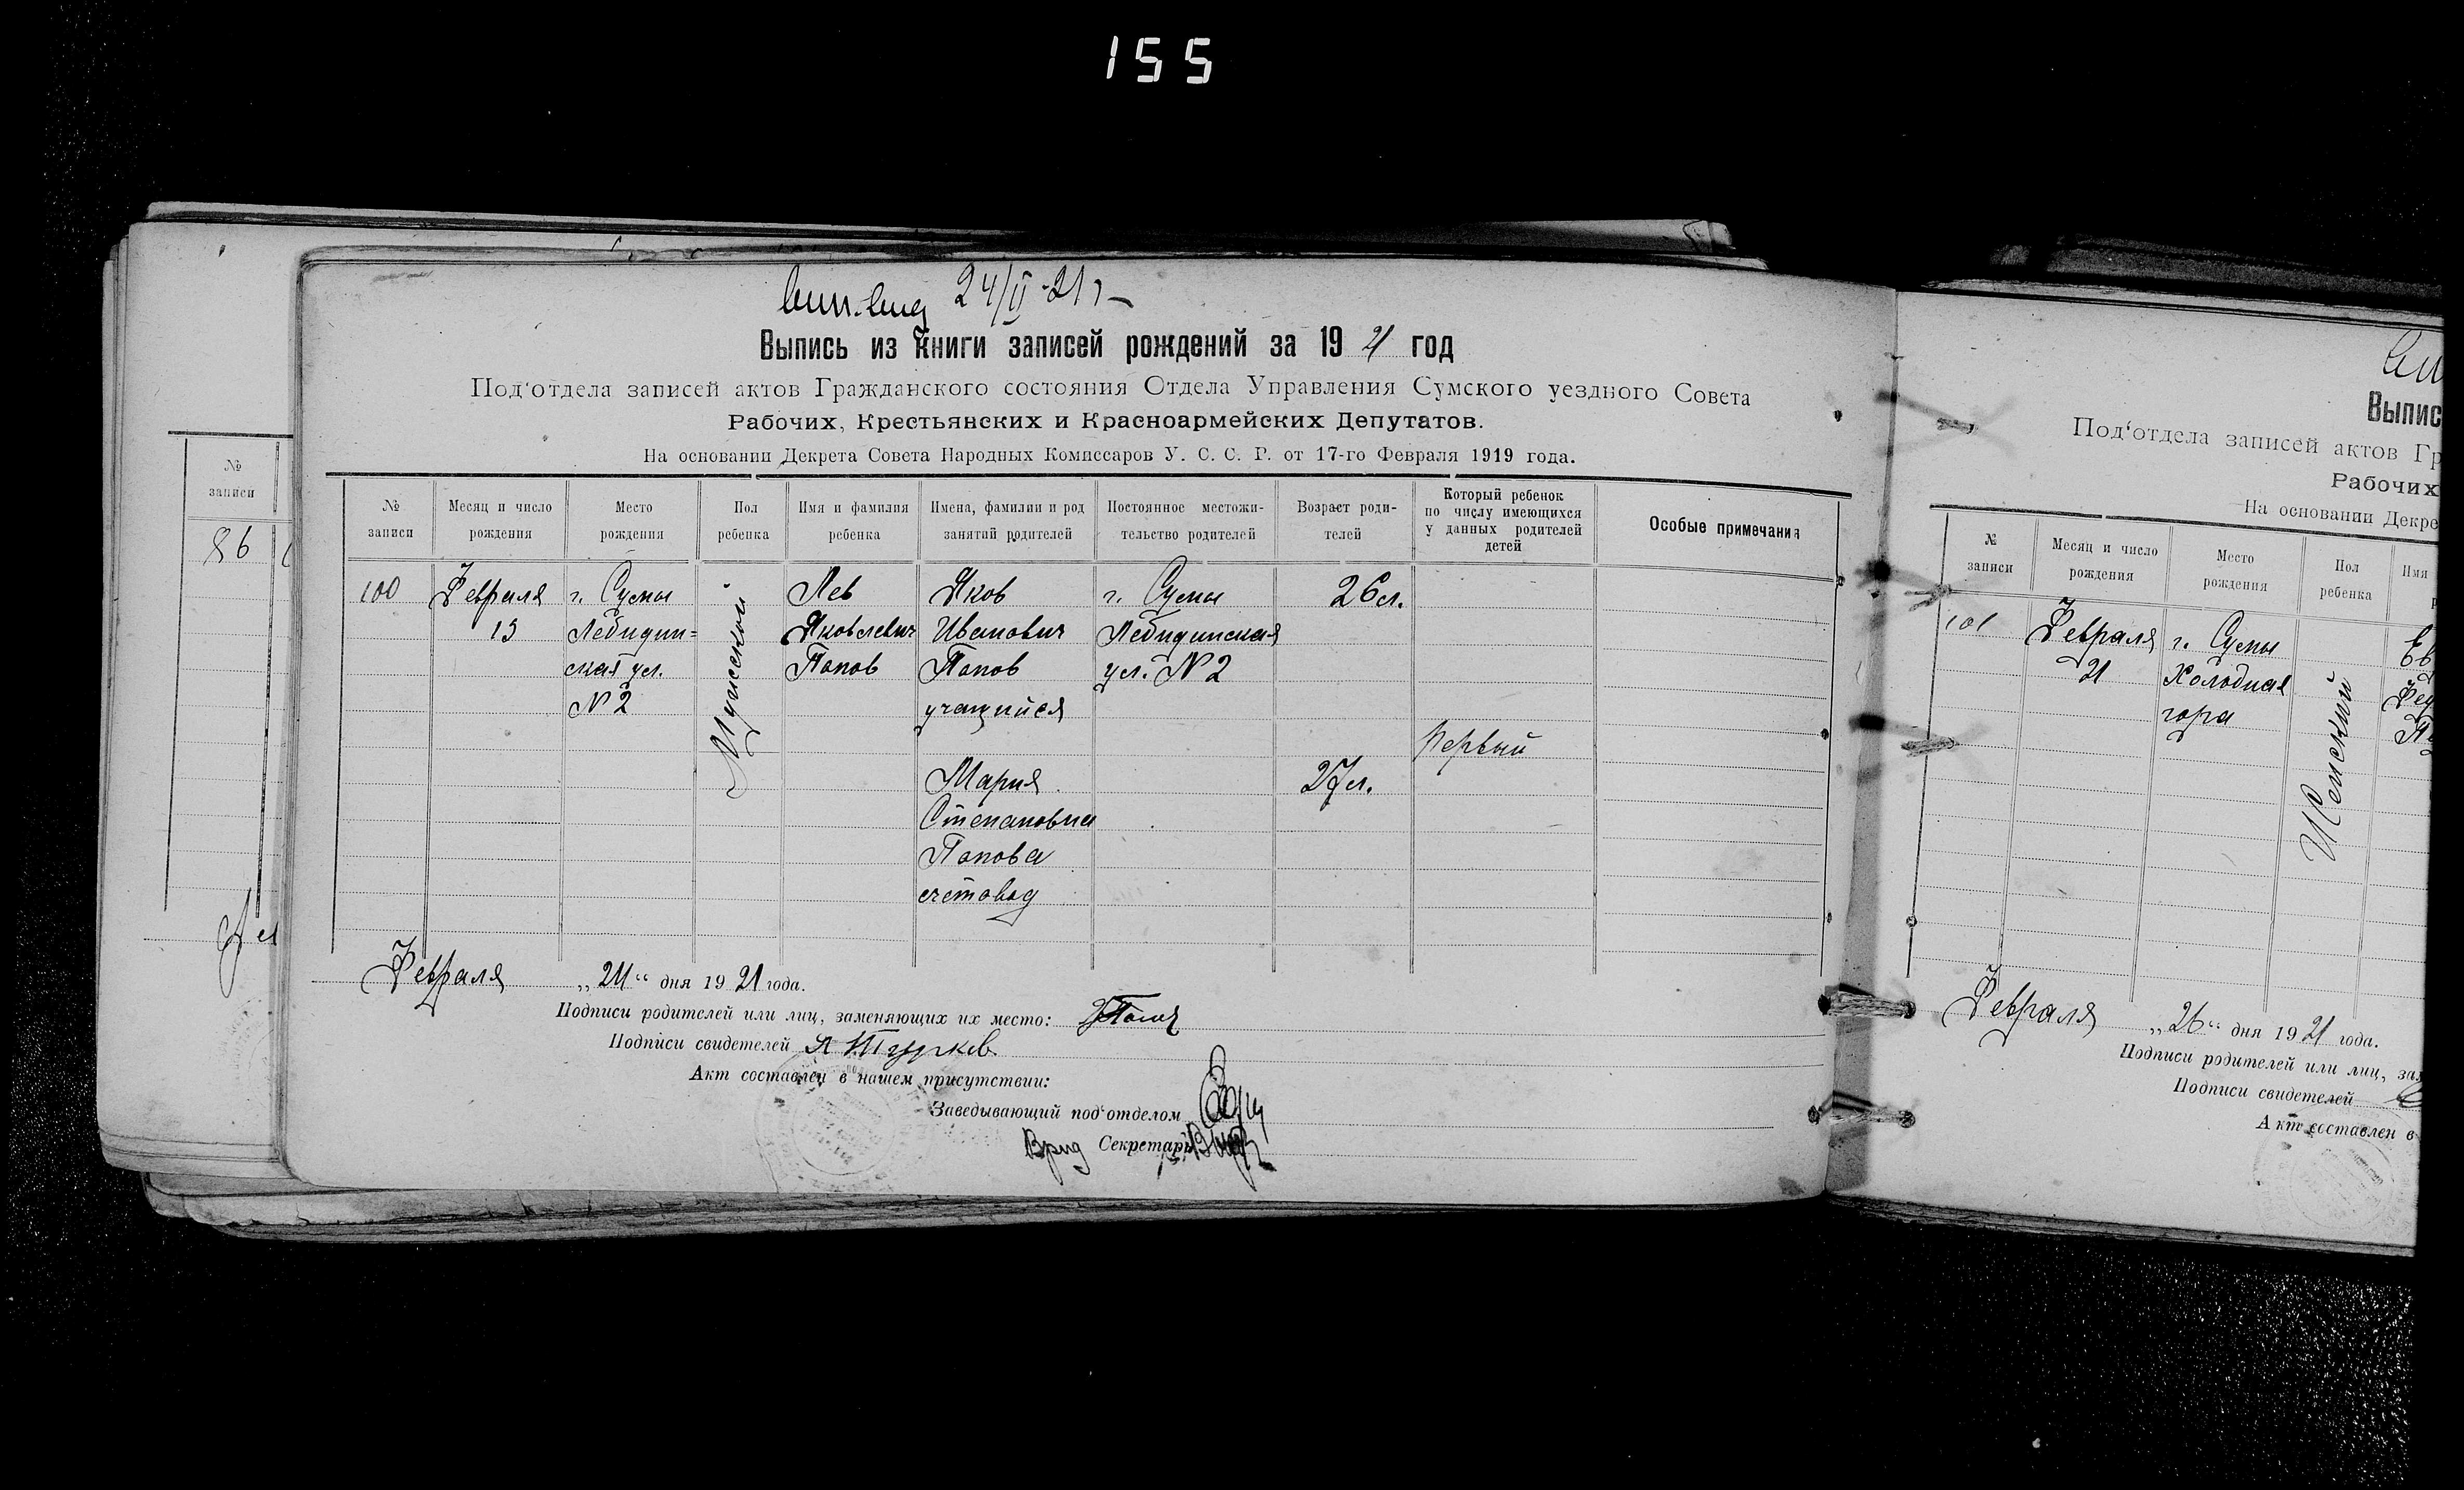 155
24/II-21 г
Выпись из книги записей рождений за 1921 год
Под‘отдела записей актов Гражданского состояния Отдела Управления Сумского уездного Совета
Рабочих, Крестьянских и Красноармейских Депутатов.
На основании Декрета Совета Народных Комиссаров У. С. С. Р. от 17-го Февраля 1919 года.
№ записи
Месяц и число рождения
Место рождения
Пол ребенка
Имя и фамилия ребенка
Имена, фамилии и род занятий родителей
Постоянное местожи-
тельство родителей
Возраст роди-
телей
Который ребенок
по числу имеющихся
у данных родителей
детей
Особые примечания
100
Февраля
13
г. Сумы
Лебидин=
ская ул.
N 2
Мужеский
Лев
Яковлевич
Попов
Яков
Иванович
Попов
учащийся
Мария
Степановна
Попова
счетовод
г. Сумы
Лебидинская
ул. N 2
26 л.
27 л.
Первый
Февраля „24“ дня 1921 года.
Подписи родителей или лиц, заменяющих их место:
Подписи свидетелей
Акт составлен в нашем присутствии:
Заведывающий под‘отделом
Врид Секретарь
№
записи
86
Выпис
Под‘отдела записей актов Гр
Рабочих
На основании Декре
№ записи
Месяц и число рождения
Место рождения
Пол ребенка
Имя
101
Февраля
21
г. Сумы
Холодная
гора
Женский
Ев
Фед
Февраля „26“ дня 1921 года.
Подписи родителей или лиц, зам
Подписи свидетелей
Акт составлен в